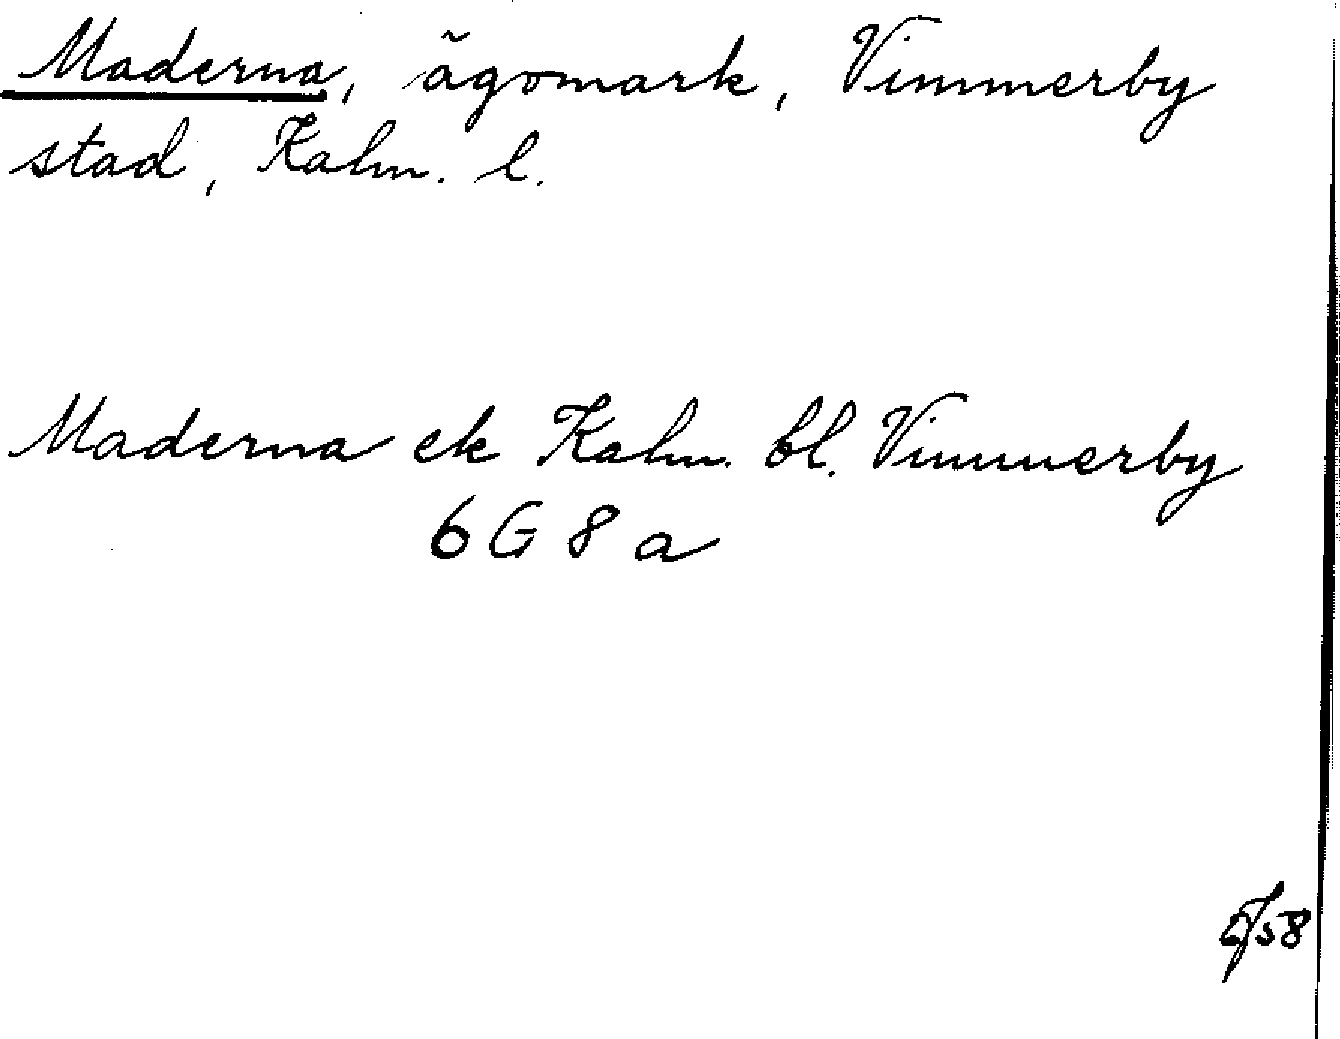 Maderna, ägomark, Vimmerby
stad, Kalm. l.
Maderna ek Kalm. bl. Vimmerby
6 G 8 a